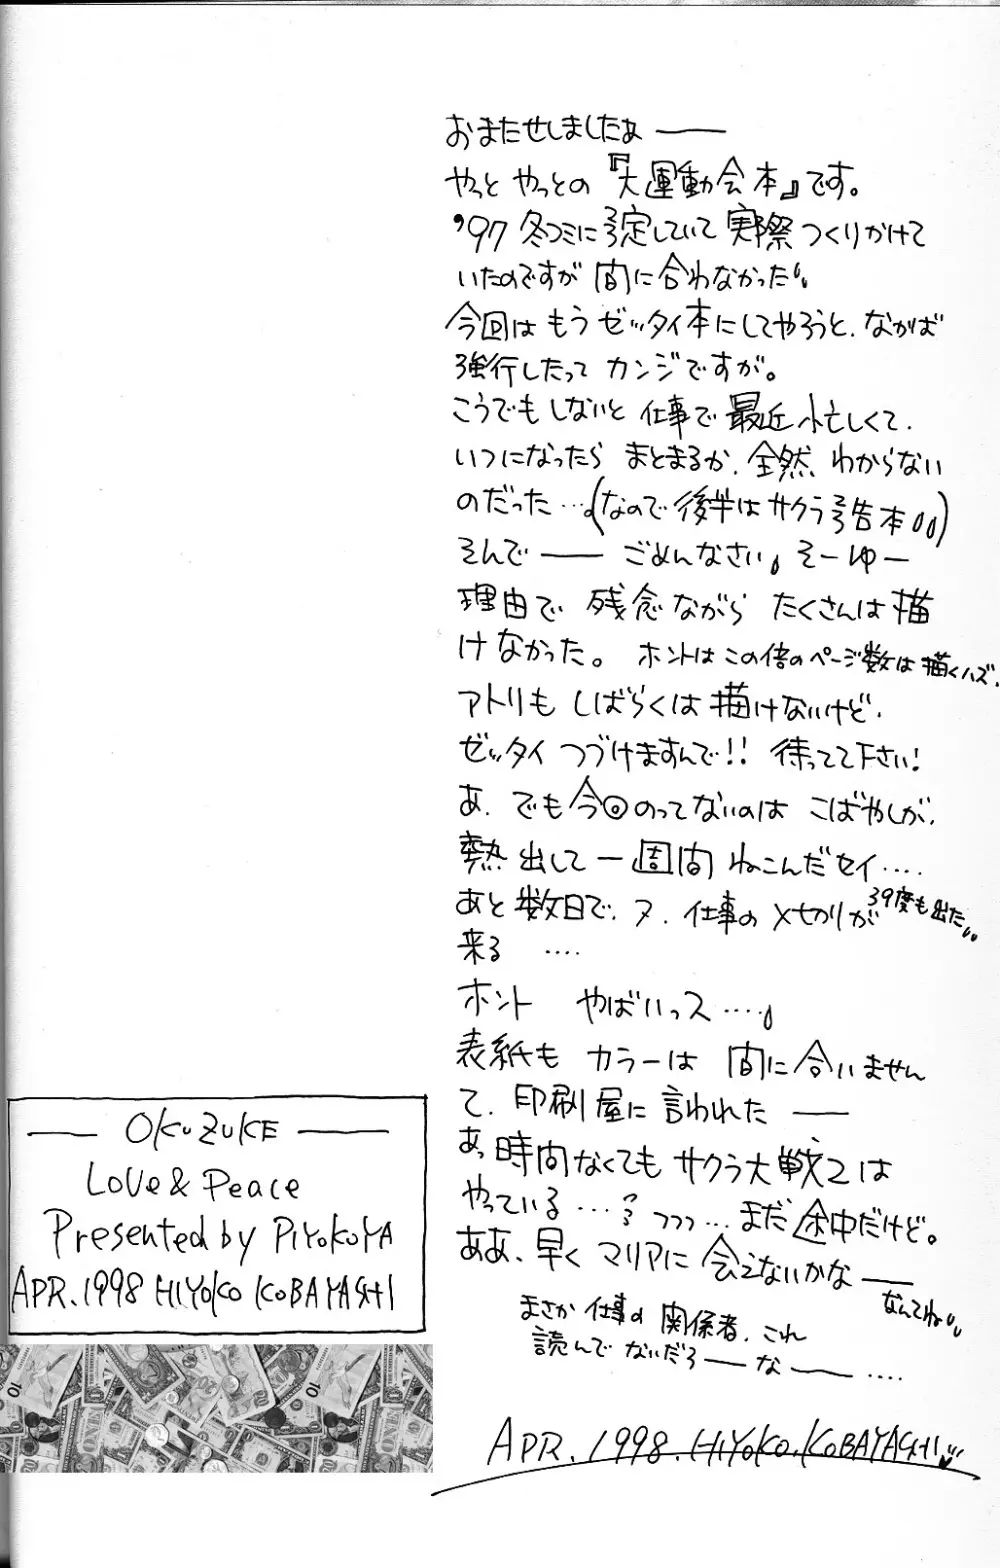 おまたせしましたぁ ――
やっと やっとの『大運動会本』です。
'97 冬コミに予定していて 実際 つくりかけて
いたのですが 間に合わなかった
今回は もう ゼッタイ本にしてやろうと、なかば
強行したって カンジですが。
こうでも しないと 仕事で 最近 忙しくて、
いつになったら まとまるか、全然 わからない
のだった …(なので 後半は サクラ予告本)
そんで ―― ごめんなさい そーゆー
理由で 残念ながら たくさんは 描
けなかった。 ホントは この倍の ページ数は 描くハズ、
アトリも しばらくは 描けないけど、
ゼッタイ つづけますんで!! 待ってて下さい!
あ、でも 今回のってないのは こばやしが、
熱出して 一週間 ねこんだセイ‥‥
39度も出た
あと 数日で、ヌ、仕事の 〆切りが
来る ‥‥
ホント やばいっス ‥‥
表紙も カラーは 間に合いません
て、印刷屋に 言われた ――
あっ 時間なくても サクラ大戦2は
やっている …‥? つつつ… まだ 途中だけど。
ああ、早く マリアに 会えないかな ――
なんてね
まさか 仕事の 関係者、これ
読んで ないだろ ―― な ―― ‥‥
APR. 1998. HIYOKO.KOBAYASHI
― OKUZUKE ―
LOVE & Peace
Presented by PIYOKOYA
APR. 1998 HIYOKO KOBAYASHI
10
ONE